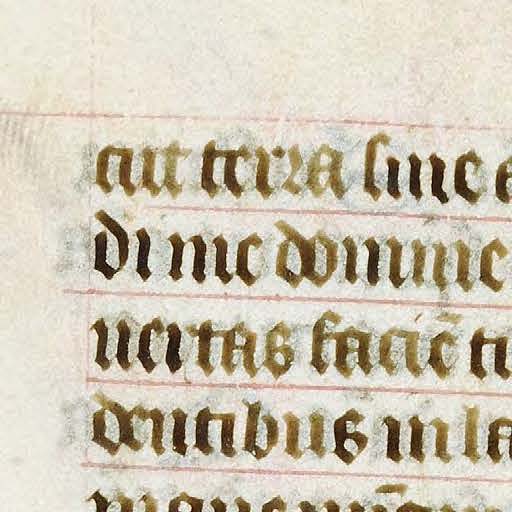 cut terra sine
di me domine
uertas faciē tu
dentibus in la